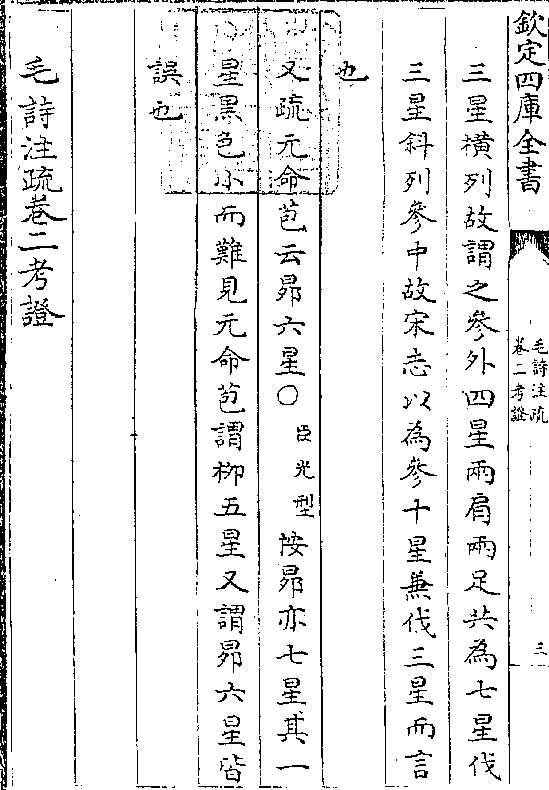 欽定四庫全書
毛詩注疏
卷二考證
三
三星橫列故謂之參外四星兩肩兩足共為七星伐
三星斜列參中故宋志以為參十星兼伐三星而言
也
又疏元命苞云昴六星○臣光型按昴亦七星其一
星黑色小而難見元命苞謂柳五星又謂昴六星皆
誤也
毛詩注疏卷二考證